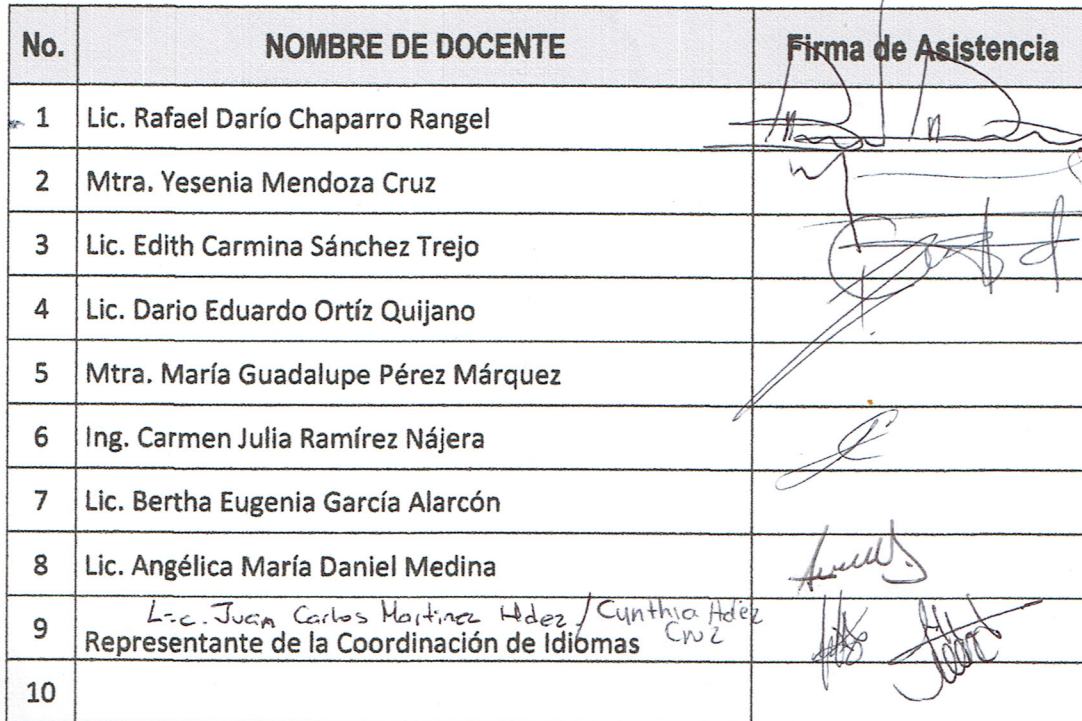 No. NOMBRE DE DOCENTE Firma de Asistencia
1 Lic. Rafael Darío Chaparro Rangel
2 Mtra. Yesenia Mendoza Cruz
3 Lic. Edith Carmina Sánchez Trejo
4 Lic. Dario Eduardo Ortíz Quijano
5 Mtra. María Guadalupe Pérez Márquez
6 Ing. Carmen Julia Ramírez Nájera
7 Lic. Bertha Eugenia García Alarcón
8 Lic. Angélica María Daniel Medina
Lic. Juan Carlos Martinez Hdez / Cynthia Hdez Cruz
9 Representante de la Coordinación de Idiomas
10